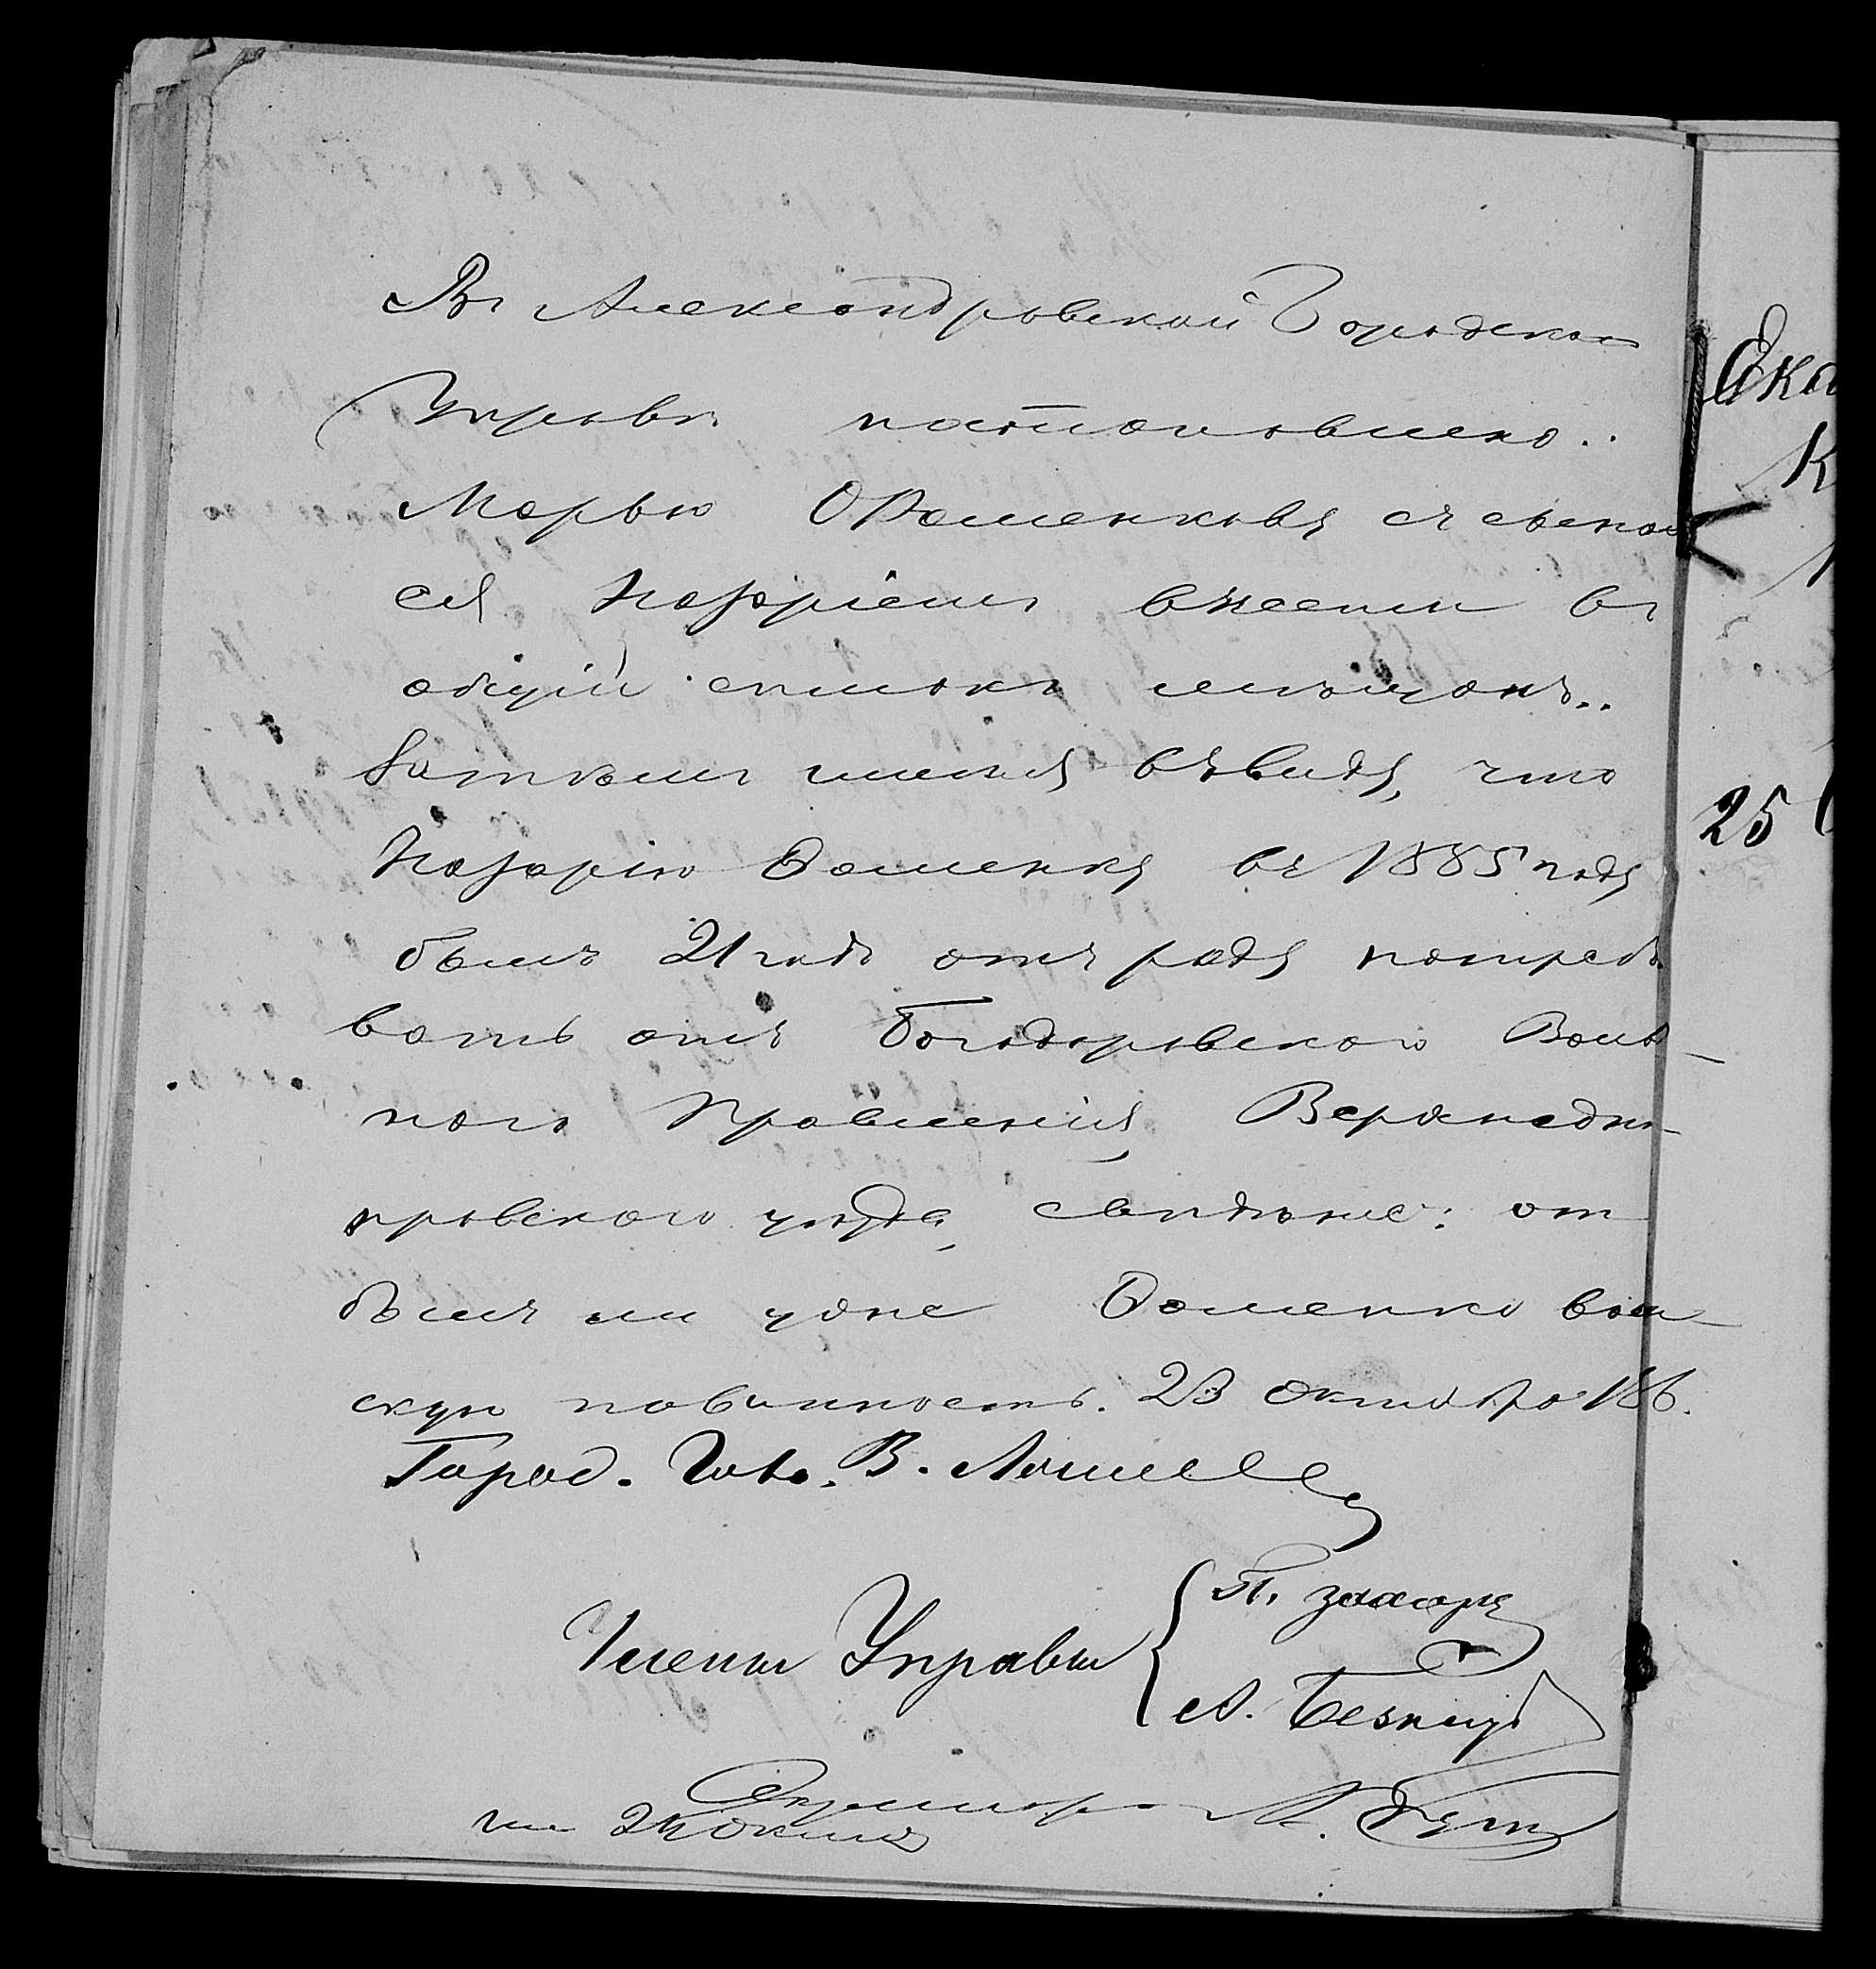 Въ Александровской Городской
Управѣ постановлено:
Марью Фоменкову съ сыномъ
ея Назаріемъ внести въ
общій списокъ мѣщанъ..
Затѣмъ имѣя въ виду, что
Назарію Фоменку въ 1885 году
былъ 21 годъ отъ роду потребо
вать отъ Богодаровского Волост-
ного Правленія, Верхнеднѣ-
провского уѣзда, свѣденіе: от
былъ ли уже Фоменко воин-
скую повинность. 23 Октября 186.
Город. Голо. В.
Члены Управы
П. Захарч
А. Безпощ
Секретарь
Ека
К
25